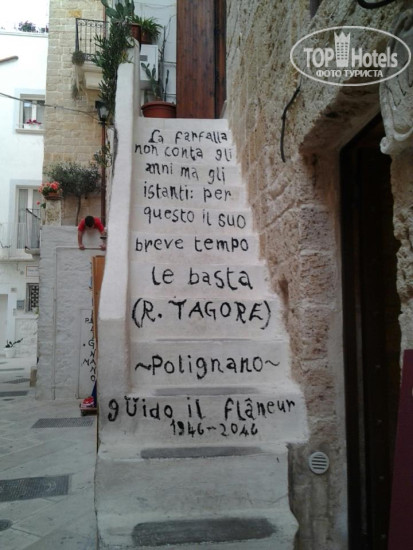 TOPHotels
ФОТО ТУРИСТА
La farfalla
non conta gli
anni ma gli
istanti: per
questo il suo
breve tempo
le basta
(R. TAGORE)
~Polignano~
gUido il flâneur
1946-2046